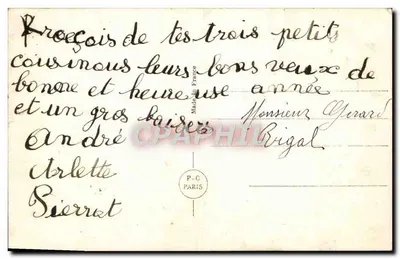 Kroeçois de tes trois petits
cousinous leurs bons veux de
bonne et heureuse année
et un gros baisers
André
Arlette
Pierrot
Monsieur Gérard
Rigal
Made in France
P-C
PARIS
CPAPHIL.COM